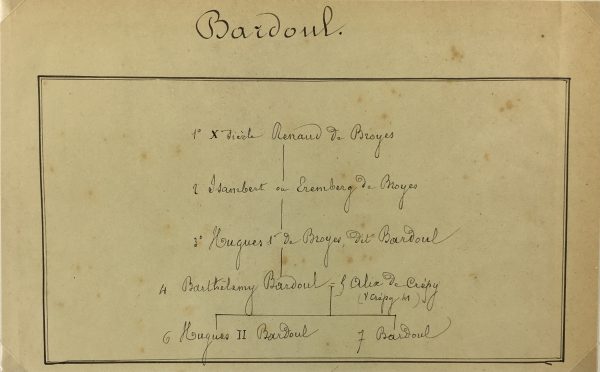 Bardoul.
1º X siècle Renaud de Broyes
2 Isambert ou Eremberg de Broyes
3º Hugues 1er de Broyes, dit Bardoul
4 Barthélemy Bardoul = 5 Alix de Crépy
(V Crépy
6 Hugues II Bardoul 7 Bardoul